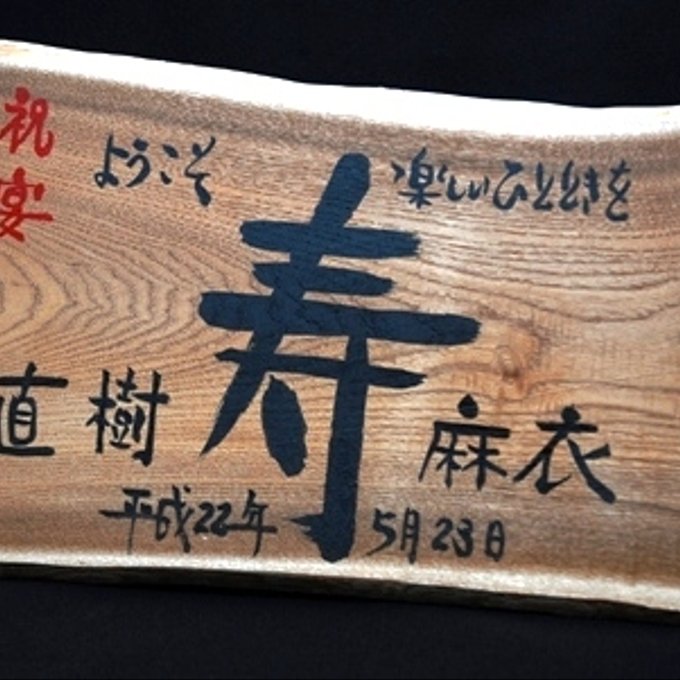 祝宴
ようこそ
寿
楽しいひとときを
直樹
麻衣
平成22年
5月23日